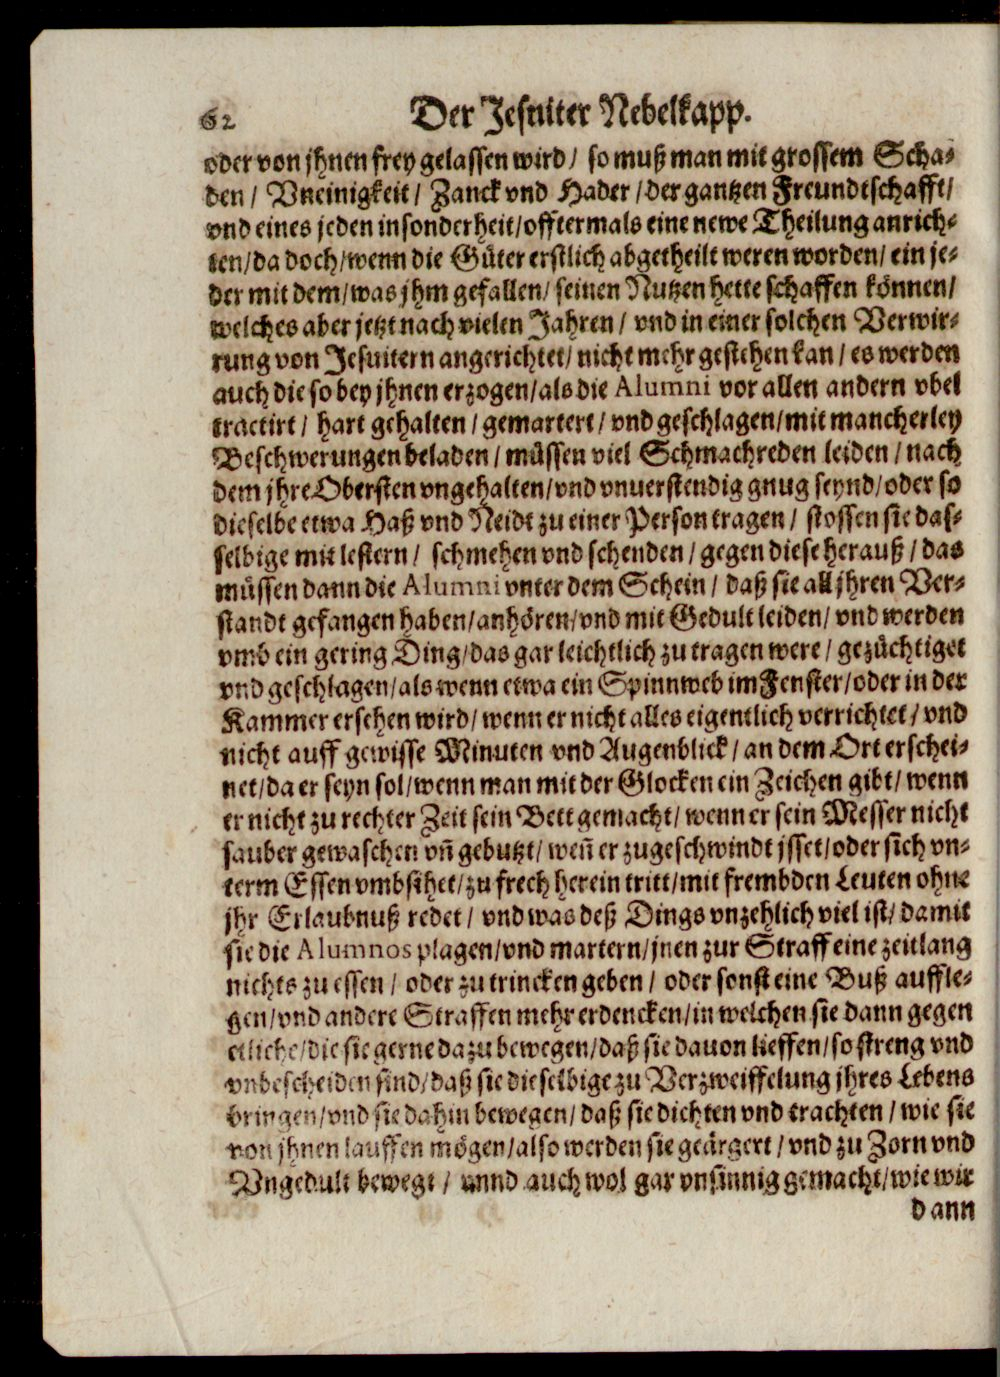 62 Der Jesuiter Nebelkapp.
oder von jhnen frey gelassen wird/ so muß man mit grossem Scha-
den/ Vneinigkeit/ Zanck vnd Hader/ der gantzen Freundtschafft/
vnd eines jeden insonderheit/ offtermals eine newe Theilung anrich-
ten/ da doch/ wenn die Güter erstlich abgetheilt weren worden/ ein je-
der mit dem/ was jhm gefallen/ seinen Nutzen hette schaffen können/
welches aber jetzt nach vielen Jahren/ vnd in einer solchen Verwir-
rung von Jesuitern angerichtet/ nicht mehr gestehen kan/ es werden
auch die so bey jhnen erzogen/ als die Alumni vor allen andern vbel
tractirt/ hart gehalten/ gemartert/ vnd geschlagen/ mit mancherley
Beschwerungen beladen/ müssen viel Schmachreden leiden/ nach
dem jhre Obersten vngehalten/ vnd vnuerstendig gnug seynd/ oder so
dieselbe etwa Haß vnd Neidt zu einer Person tragen/ stossen sie das-
selbige mit lestern/ schmehen vnd schenden/ gegen diese herauß/ das
müssen dann die Alumni vnter dem Schein/ daß sie all jhren Ver-
standt gefangen haben/ anhören/ vnd mit Gedult leiden/ vnd werden
vmb ein gering Ding/ das gar leichtlich zu tragen were/ gezüchtiget
vnd geschlagen/ als wenn etwa ein Spinnweb im Fenster/ oder in der
Kammer ersehen wird/ wenn er nicht alles eigentlich verrichtet/ vnd
nicht auff gewisse Minuten vnd Augenblick/ an dem Ort erschei-
net/ da er seyn sol/ wenn man mit der Glocken ein Zeichen gibt/ wenn
er nicht zu rechter Zeit sein Bett gemacht/ wenn er sein Messer nicht
sauber gewaschen vñ gebutzt/ weñ er zugeschwindt jsset/ oder sich vn-
term Essen vmbsihet/ zu frech herein tritt/ mit frembden Leuten ohne
jhr Erlaubnuß redet/ vnd was deß Dings vnzehlich viel ist/ damit
sie die Alumnos plagen/ vnd martern/ jnen zur Straff eine zeitlang
nichts zu essen/ oder zu trincken geben/ oder sonst eine Buß auffle-
gen/ vnd andere Straffen mehr erdencken/ in welchen sie dann gegen
etliche/ die sie gerne dazu bewegen/ daß sie dauon lieffen/ so streng vnd
vnbescheiden sind/ daß sie dieselbige zu Verzweiffelung jhres Lebens
bringen/ vnd sie dahin bewegen/ daß sie dichten vnd trachten/ wie sie
von jhnen lauffen mögen/ also werden sie geärgert/ vnd zu Zorn vnd
Vngedult bewegt/ vnnd auch wol gar vnsinnig gemacht/ wie wir
dann